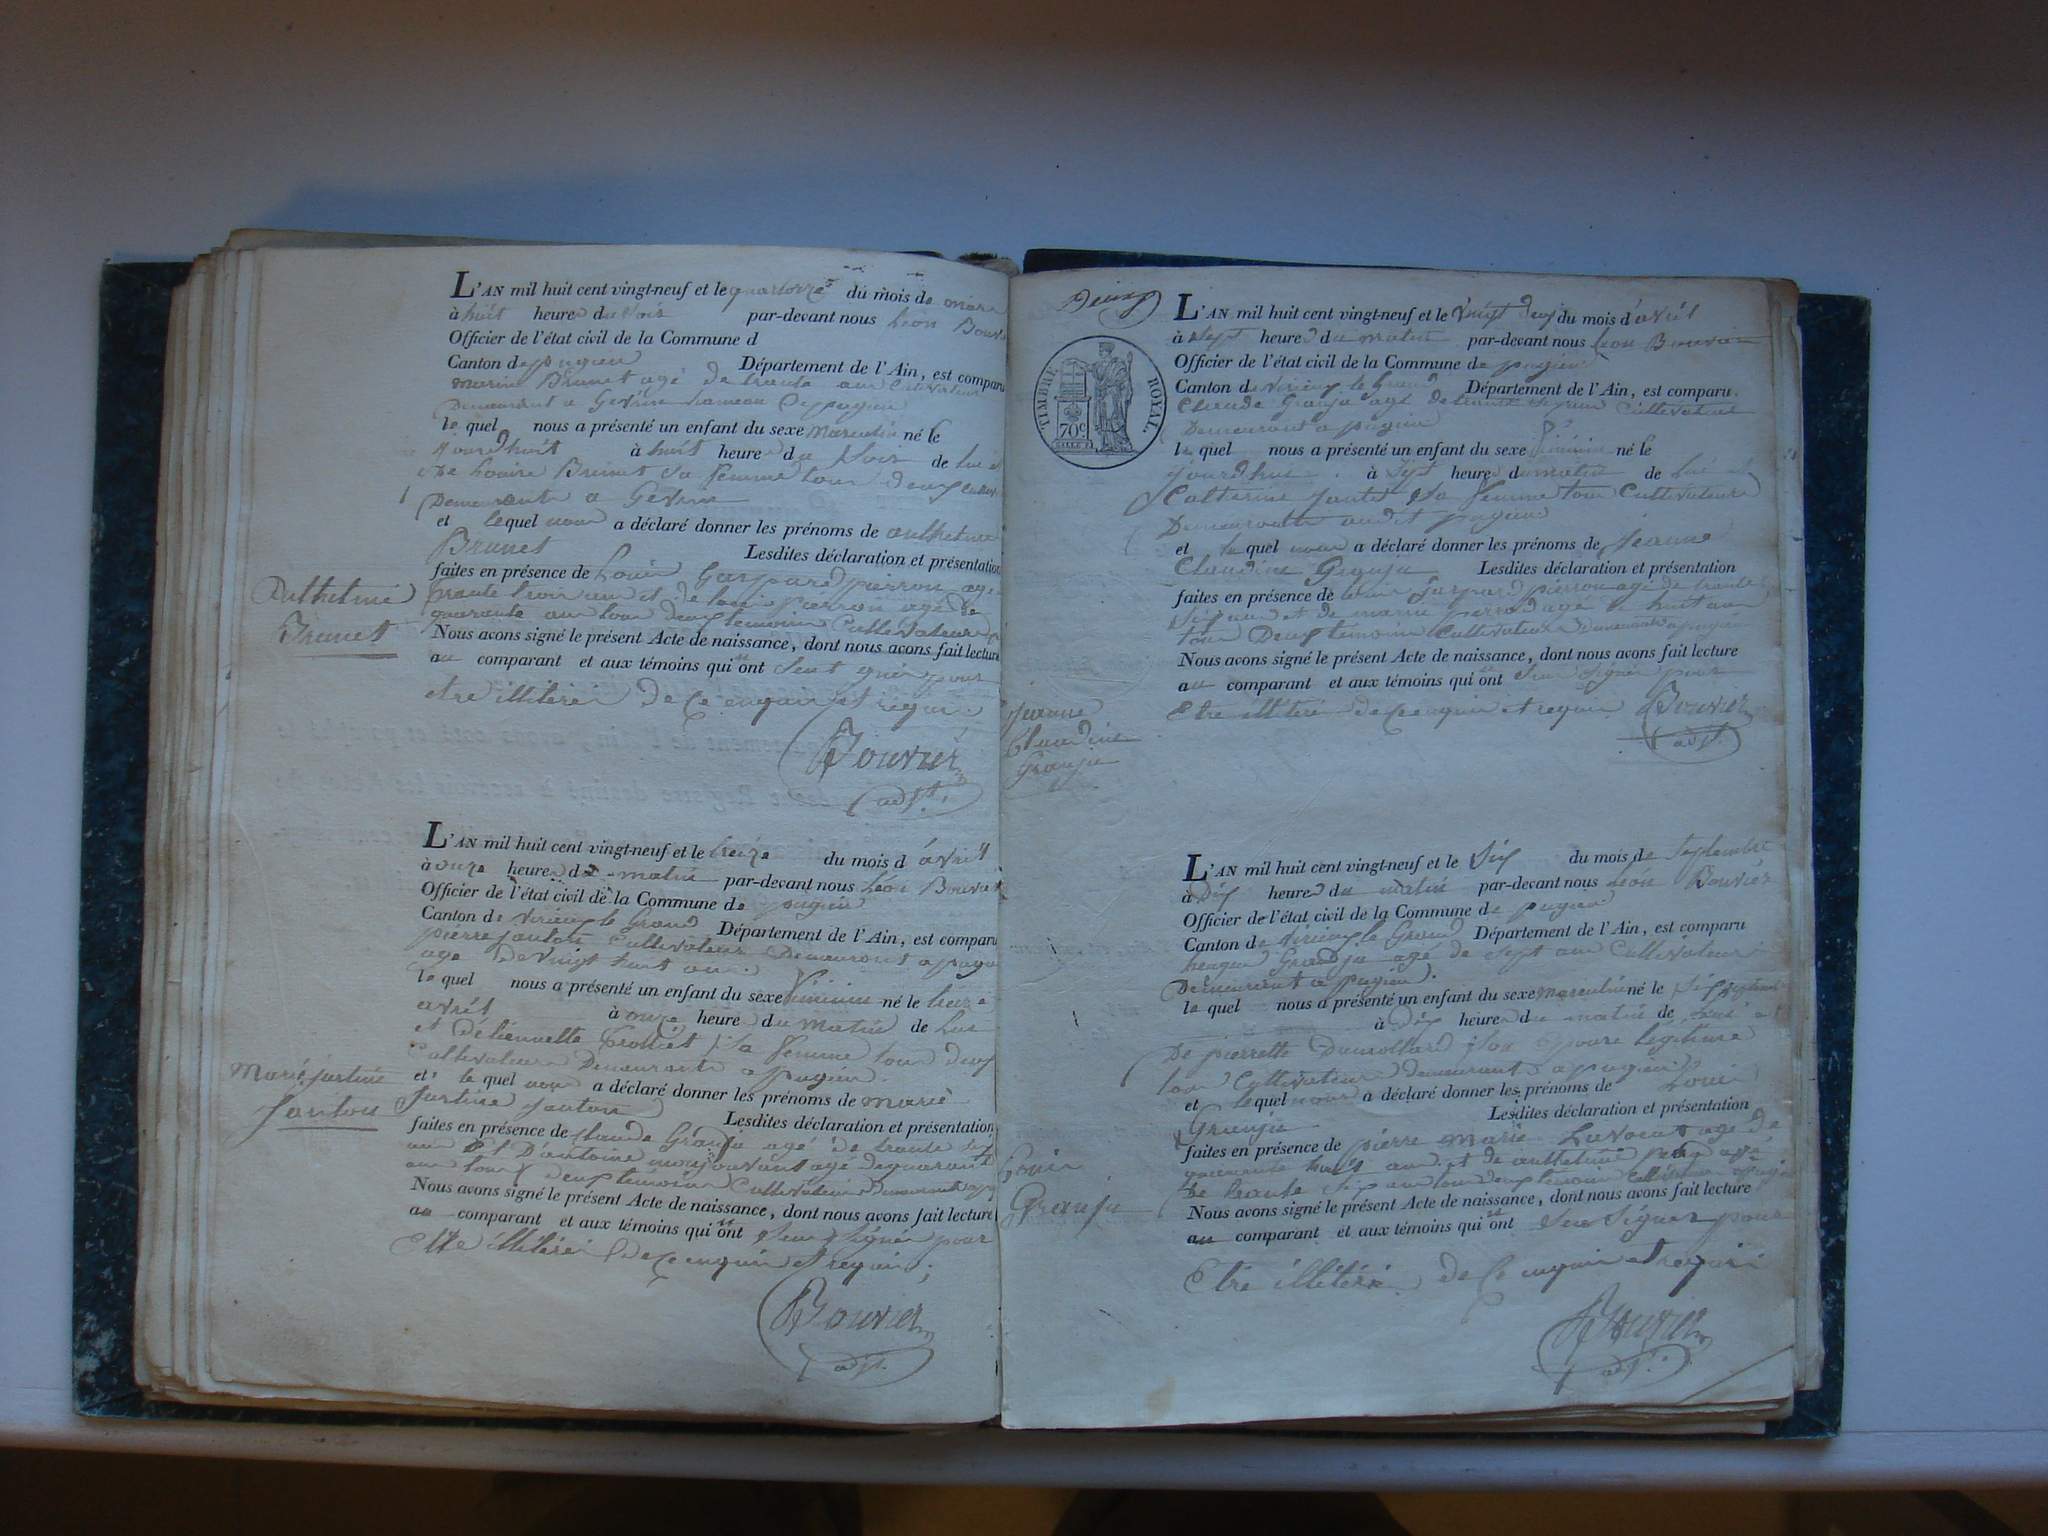 L'AN mil huit cent vingt-neuf et le quatorze du mois de mars
à huit heures du soir par-devant nous Léon Bouvier
Officier de l'état civil de la Commune d
Canton de pugieu Département de l'Ain, est comparu
marin Brunet agé de trante ans Cultivateur
Demeurant a Gevrin hameau de pugieu
le quel nous a présenté un enfant du sexe Masculin né le
jourdhuit à huit heures du soir de lui et
De Louise Brunet sa femme tous deux
Demeurants a Gevrin
et lequel nous a déclaré donner les prénoms de anthelme
Brunet Lesdites déclaration et présentation
faites en présence de Louis Gaspard pierron agé
trante trois ans et de Louis pierron agé de
quarante ans tous deux temoins Cultivateurs
Nous avons signé le présent Acte de naissance, dont nous avons fait lecture
au comparant et aux témoins qui n'ont seut pour
etre illitérés de ce enquis et requis.
Bouvier
adjt.
Anthelme
Brunet
L'AN mil huit cent vingt-neuf et le treize du mois d'avril
à onze heures du matin par-devant nous Léon Bouvier
Officier de l'état civil de la Commune de pugieu
Canton de virieu le Grand Département de l'Ain, est comparu
pierre Janton Cultivateur Demeurant a pugieu
age de vingt huit ans.
le quel nous a présenté un enfant du sexe féminin né le treize
avril à onze heures du matin de lui
et de sa femme tous deux
Cultivateurs Demeurants a pugieu.
et le quel nous a déclaré donner les prénoms de marie
Justine Janton Lesdites déclaration et présentation
faites en présence de Claude Granju agé de trante
ans Et D'antoine agé de quarante
ans tous deux témoins Cultivateurs
Nous avons signé le présent Acte de naissance, dont nous avons fait lecture
au comparant et aux témoins qui n'ont seu signer pour
Etre illitérés de ce enquis et requis;
Bouvier
adjt.
Marie justine
Janton
Deux
TIMBRE ROYAL.
70 c
L'AN mil huit cent vingt-neuf et le vingt deux du mois d'avril
à sept heures du matin par-devant nous Léon Bouvier
Officier de l'état civil de la Commune de pugieu
Canton de virieu le Grand Département de l'Ain, est comparu
Claude Granju agé de Cultivateur
Demeurant a pugieu
le quel nous a présenté un enfant du sexe féminin né le
jourdhui à sept heures du matin de lui et
Catherine sa femme tous Cultivateurs
Demeurants audit pugieu
et le quel nous a déclaré donner les prénoms de Jeanne
Claudine Granju Lesdites déclaration et présentation
faites en présence de Louis Gaspard pierron agé de trante
six ans et de marin agé de huit ans
tous Deux témoins Cultivateurs Demeurants a pugieu
Nous avons signé le présent Acte de naissance, dont nous avons fait lecture
au comparant et aux témoins qui n'ont seu signer pour
Etre illitéré de ce enquis et requis Bouvier
adjt.
Jeanne
Claudine
Granju
L'AN mil huit cent vingt-neuf et le six du mois de septembre
à Dix heures du matin par-devant nous Léon Bouvier
Officier de l'état civil de la Commune de pugieu
Canton de virieu le Grand Département de l'Ain, est comparu
Granju agé de sept ans Cultivateur
Demeurant a pugieu.
le quel nous a présenté un enfant du sexe masculin né le six septembre
à Dix heures du matin de lui et
De pierrette Dumollard son Epouse légitime
tous Cultivateurs demeurants a pugieu
et lequel nous a déclaré donner les prénoms de Louis
Granju Lesdites déclaration et présentation
faites en présence de pierre marie agé de
quarante huit ans et de anthelme agé
De trante six ans tous deux temoins Cultivateurs
Nous avons signé le présent Acte de naissance, dont nous avons fait lecture
au comparant et aux témoins qui n'ont seu signer pour
Etre illitéré de ce enquis et requis
Bouvier
adjt.
Louis
Granju